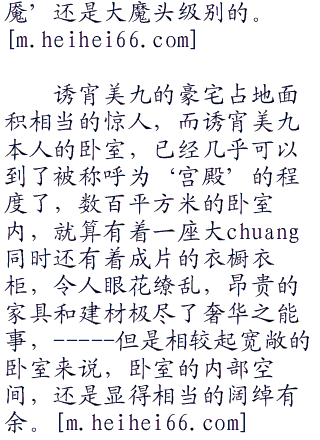 魇’还是大魔头级别的。
[m.heihei66.com]
诱宵美九的豪宅占地面
积相当的惊人，而诱宵美九
本人的卧室，已经几乎可以
到了被称呼为‘宫殿’的程
度了，数百平方米的卧室
内，就算有着一座大chuang
同时还有着成片的衣橱衣
柜，令人眼花缭乱，昂贵的
家具和建材极尽了奢华之能
事，-----但是相较起宽敞的
卧室来说，卧室的内部空
间，还是显得相当的阔绰有
余。[m.heihei66.com]